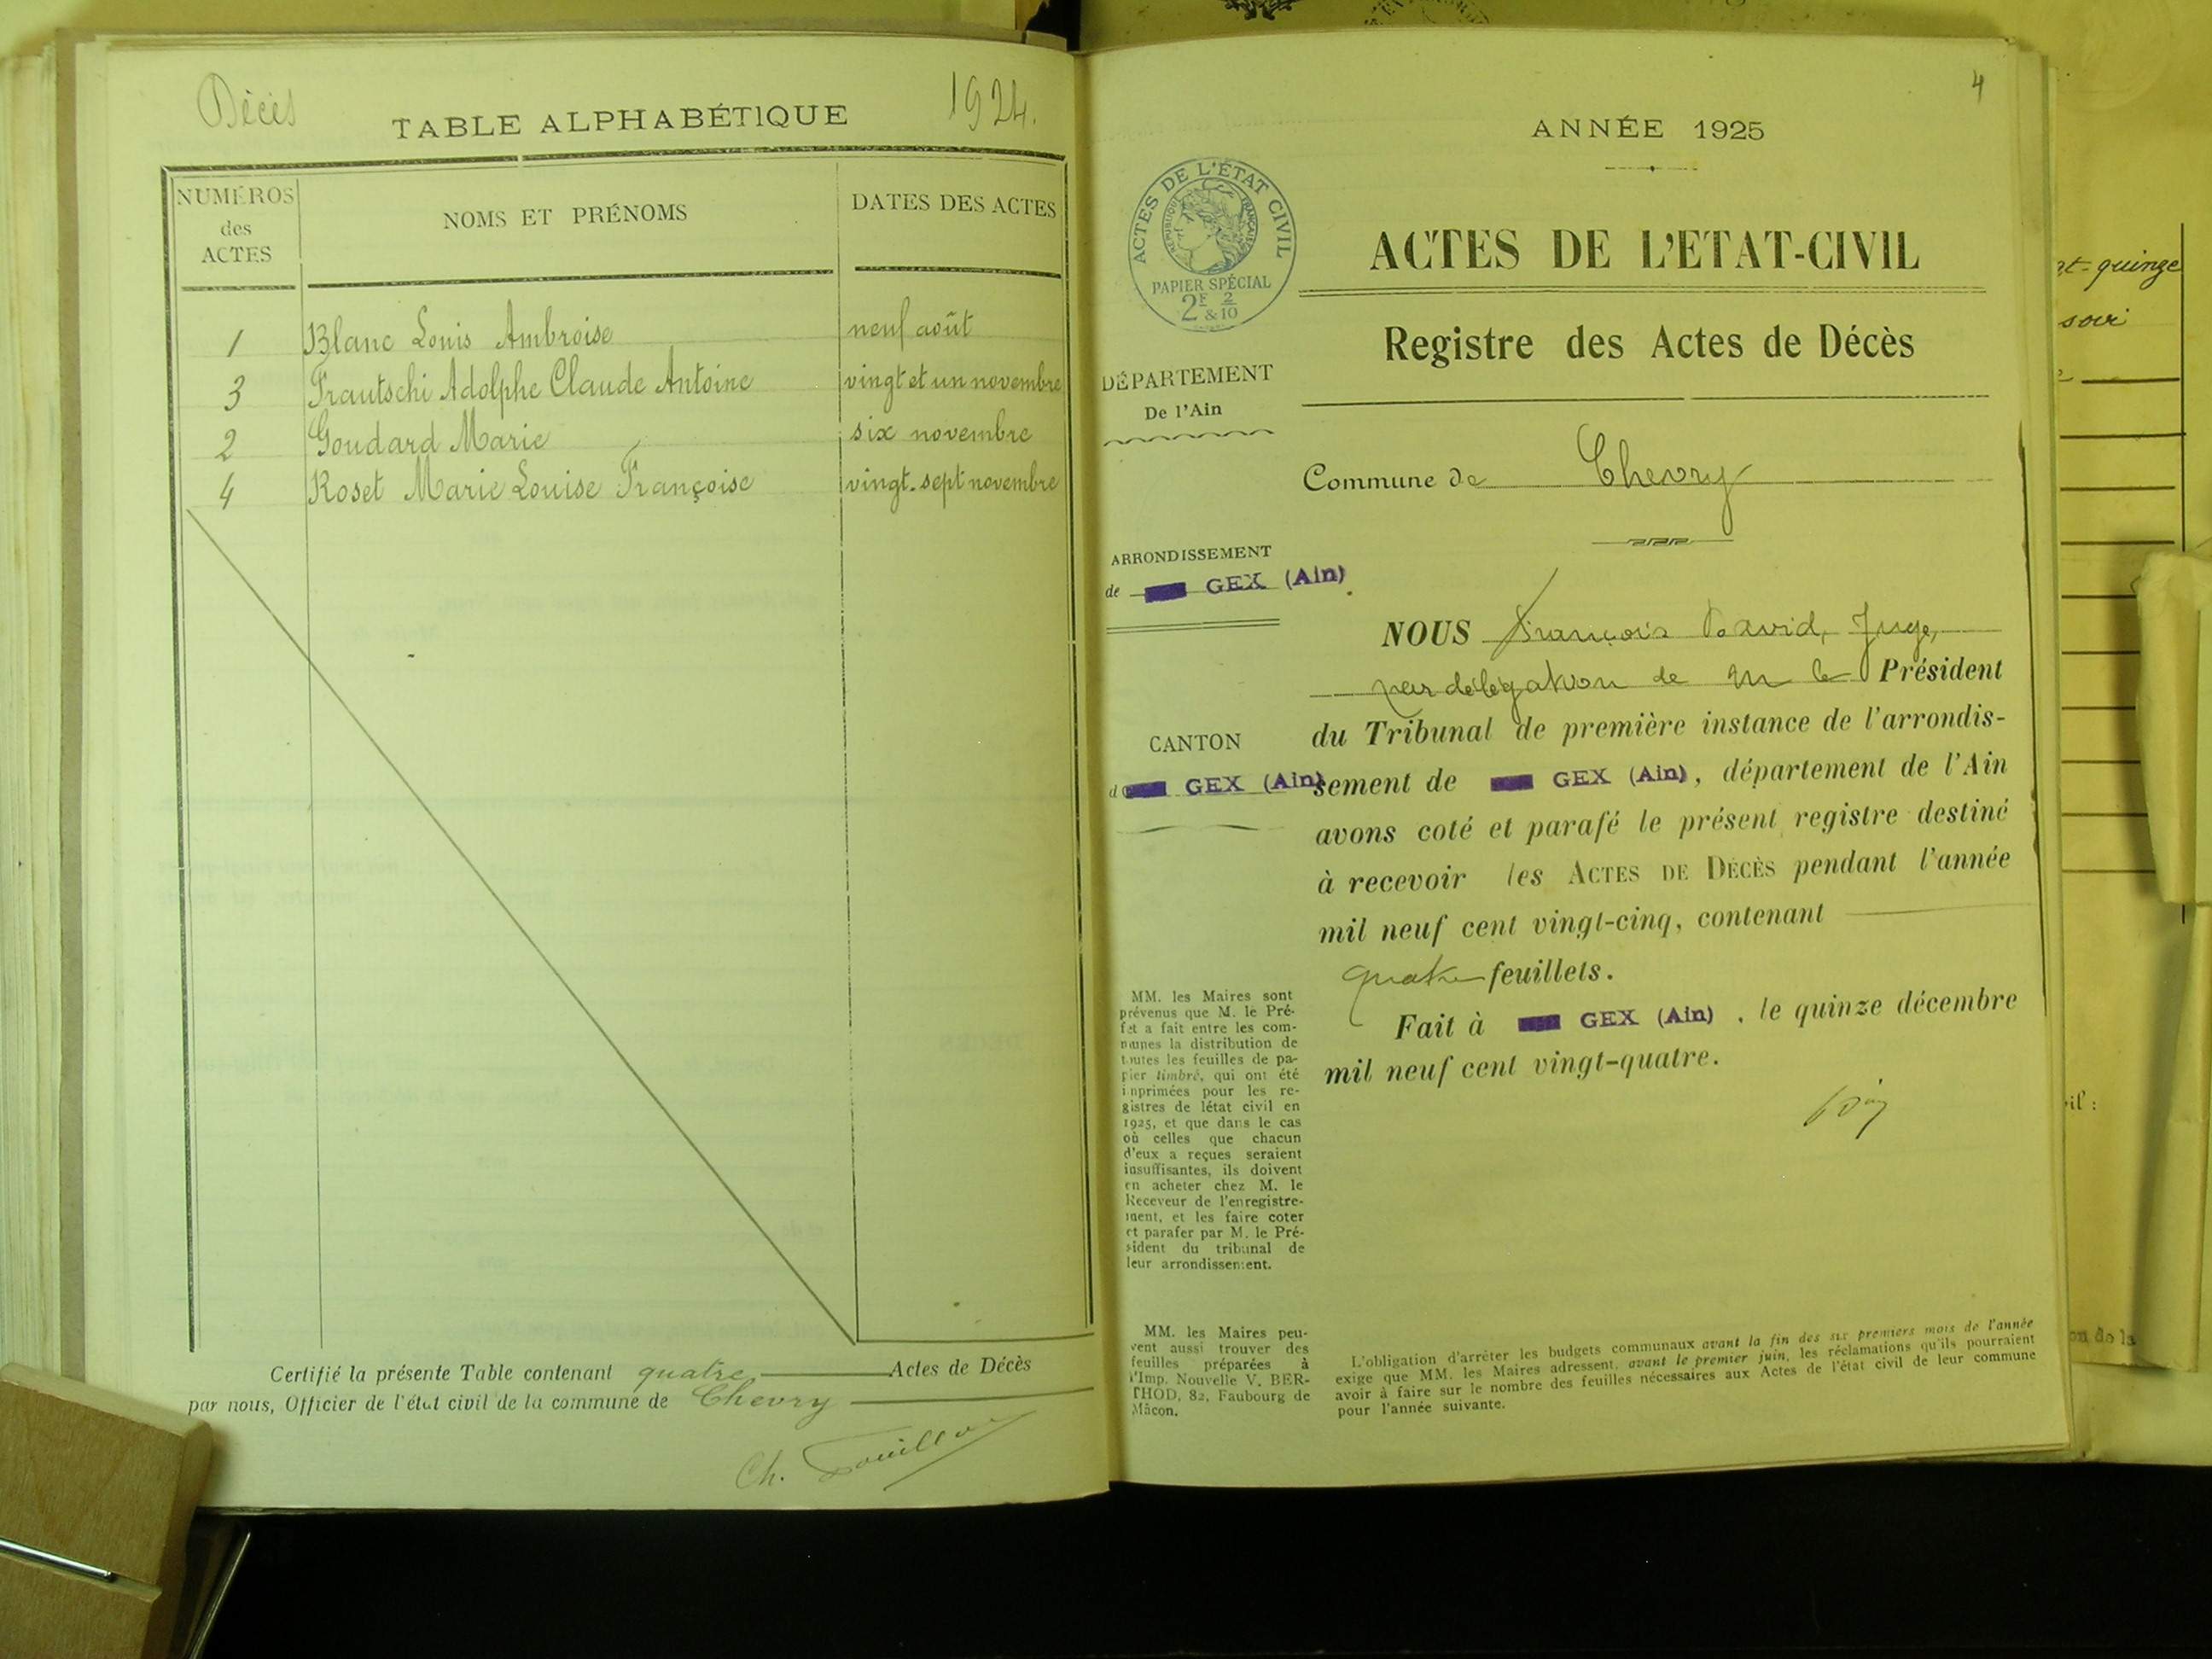 Décès
TABLE ALPHABÉTIQUE
1924.
NUMÉROS
des
ACTES
NOMS ET PRÉNOMS
DATES DES ACTES
1 Blanc Louis Ambroise neuf août
3 Frautschi Adolphe Claude Antoine vingt et un novembre
2 Goudard Marie six novembre
4 Roset Marie Louise Françoise vingt-sept novembre
Certifié la présente Table contenant quatre Actes de Décès
par nous, Officier de l'état civil de la commune de Chevry
Ch.
4
ANNÉE 1925
ACTES DE L'ÉTAT CIVIL
RÉPUBLIQUE FRANÇAISE
PAPIER SPÉCIAL
2F 2
& 10
ACTES DE L'ETAT-CIVIL
Registre des Actes de Décès
DÉPARTEMENT
De l'Ain
Commune de Chevry
ARRONDISSEMENT
de GEX (Ain)
NOUS François David, Juge,
par délégation de M le Président
du Tribunal de première instance de l'arrondis-
CANTON
de GEX (Ain)
sement de GEX (Ain), département de l'Ain
avons coté et parafé le présent registre destiné
à recevoir les ACTES DE DÉCÈS pendant l'année
mil neuf cent vingt-cinq, contenant
quatre feuillets.
Fait à GEX (Ain), le quinze décembre
mil neuf cent vingt-quatre.
MM. les Maires sont
prévenus que M. le Pré-
fet a fait entre les com-
munes la distribution de
toutes les feuilles de pa-
pier timbré, qui ont été
imprimées pour les re-
gistres de létat civil en
1925, et que dans le cas
où celles que chacun
d'eux a reçues seraient
insuffisantes, ils doivent
en acheter chez M. le
Receveur de l'enregistre-
ment, et les faire coter
et parafer par M. le Pré-
sident du tribunal de
leur arrondissement.
MM. les Maires peu-
vent aussi trouver des
feuilles préparées à
l'Imp. Nouvelle V. BER-
THOD, 82, Faubourg de
Mâcon.
L'obligation d'arrêter les budgets communaux avant la fin des six premiers mois de l'année
exige que MM. les Maires adressent, avant le premier juin, les réclamations qu'ils pourraient
avoir à faire sur le nombre des feuilles nécessaires aux Actes de l'état civil de leur commune
pour l'année suivante.
quinze
soir